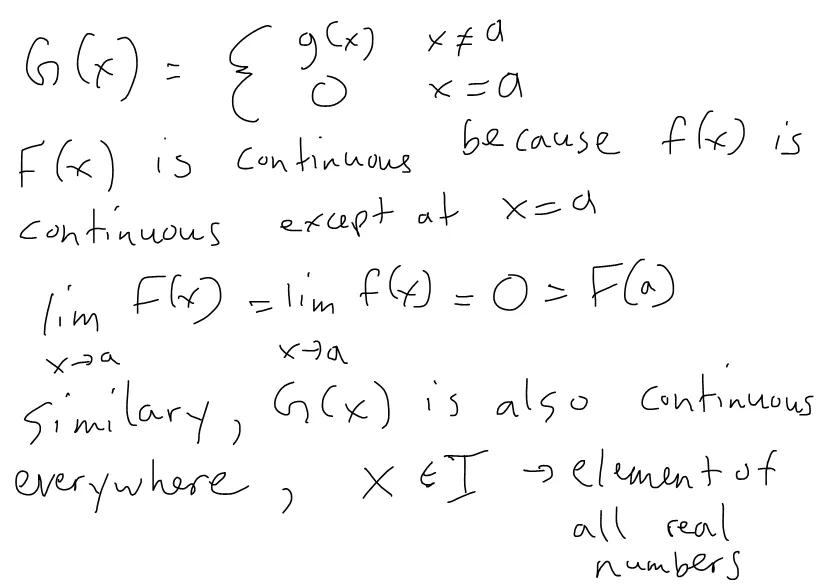 G(x) = { g(x) x ≠ a
0 x = a
F(x) is continuous because f(x) is
continuous except at x = a
lim F(x) = lim f(x) = 0 = F(a)
x→a x→a
Similary, G(x) is also continuous
everywhere, x ∈ I → element of
all real
numbers